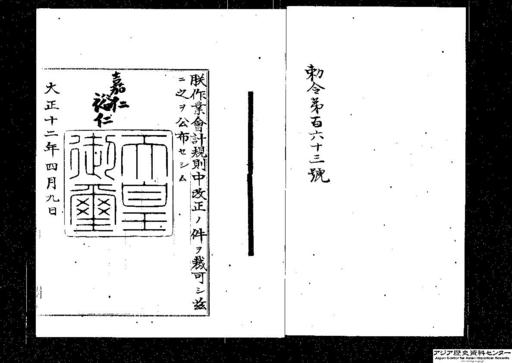 勅令第百六十三號
朕作業會計規則中改正ノ件ヲ裁可シ茲
ニ之ヲ公布セシム
嘉仁
裕仁
天皇
御璽
大正十二年四月九日
アジア歴史資料センター
Japan Center for Asian Historical Records